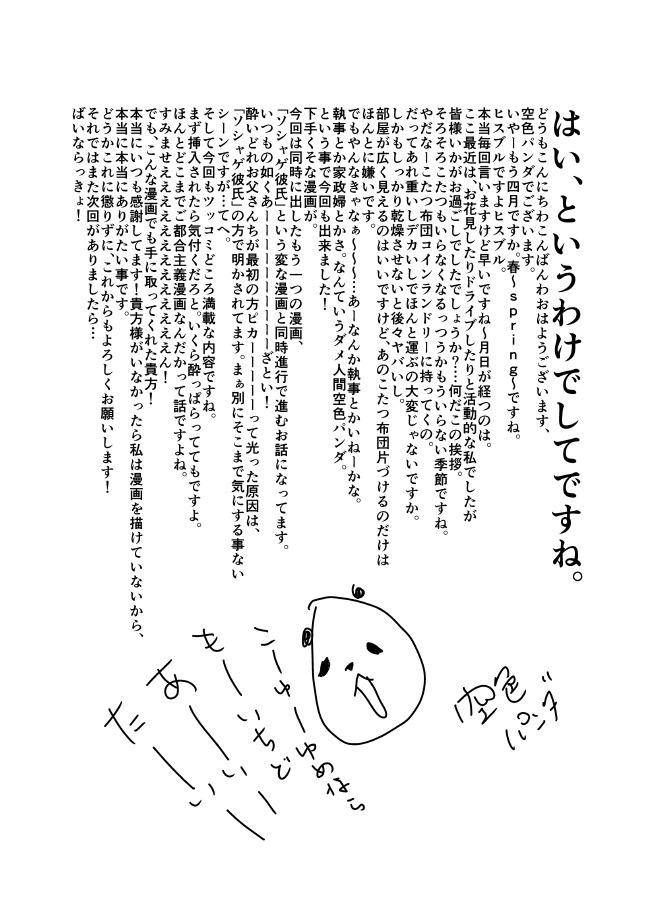 はい、というわけでしてですね。
どうもこんにちわこんばんわおはようございます、
空色パンダでございます。
いやーもう四月ですか。春～ｓｐｒｉｎｇ～ですね。
ヒスブルですよヒスブル。
本当毎回言いますけど早いですね～月日が経つのは。
ここ最近は、お花見したりドライブしたりと活動的な私でしたが
皆様いかがお過ごしでしたでしょうか？…何だこの挨拶。
そろそろこたつもいらなくなるっつうかもういらない季節ですね。
やだなーこたつ布団コインランドリーに持ってくの。
だってあれ重いしデカいしでほんと運ぶの大変じゃないですか。
しかもしっかり乾燥させないと後々ヤバいし。
部屋が広く見えるのはいいですけど、あのこたつ布団片づけるのだけは
ほんとに嫌いです。
でもやんなきゃなぁ～～～…あーなんか執事とかいねーかな。
執事とか家政婦とかさ。なんていうダメ人間空色パンダ。
という事で今回も出来ました！
下手くそな漫画が。
今回は同時に出したもう一つの漫画、
「ソシャゲ彼氏」という変な漫画と同時進行で進むお話になってます。
いつもの如くあーーーーーーーーーざとい！
酔いどれお父さんちが最初の方ピカーーーーーって光った原因は、
「ソシャゲ彼氏」の方で明かされてます。まぁ別にそこまで気にする事ない
シーンですが…てへ。
そして今回もツッコミどころ満載な内容ですね。
まず挿入されたら気付くだろと。いくら酔っぱらっててもですよ。
ほんとどこまでご都合主義漫画なんだかって話ですよね。
すみませえええええええええええええん！
でも、こんな漫画でも手に取ってくれた貴方！
本当にいつも感謝してます！貴方様がいなかったら私は漫画を描けていないから、
本当に本当にありがたい事です。
どうかこれに懲りずに、これからもよろしくお願いします！
それではまた次回がありましたら…
ばいならっきょ！
空色パンダ
こーゆーゆめなら
もーいちど
あーいい
だーい